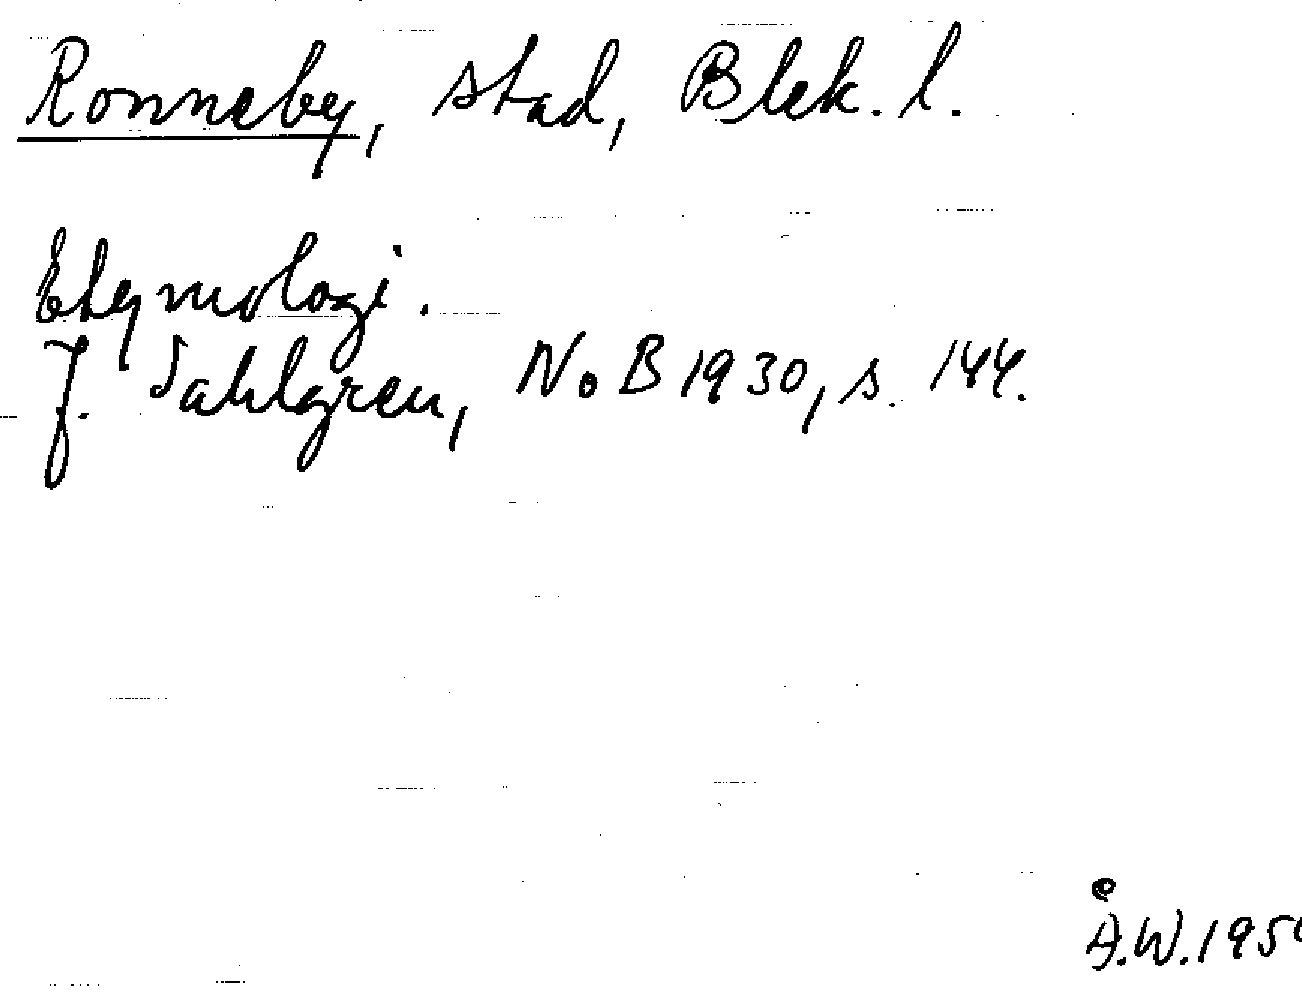 Ronneby, stad, Blek. l.
Etymologi.
J. Sahlgren, NoB 1930, s. 144.
Å.W.